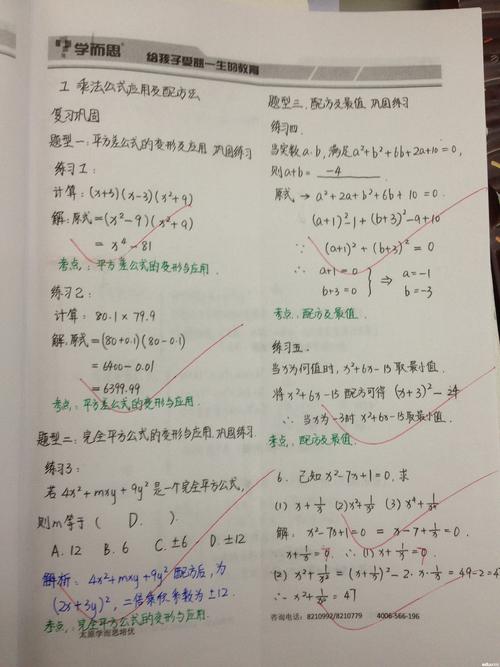 学而思
给孩子受益一生的教育
1. 乘法公式应用及配方法
复习巩固
题型一:平方差公式的变形及应用 巩固练习
练习1:
计算:(x+3)(x-3)(x²+9)
解:原式=(x²-9)(x²+9)
= x⁴-81
考点:平方差公式的变形与应用
练习2:
计算:80.1×79.9
解:原式=(80+0.1)(80-0.1)
=6400-0.01
=6399.99
考点:平方差公式的变形与应用.
题型二:完全平方公式的变形与应用 巩固练习.
练习3:
若4x²+mxy+9y²是一个完全平方公式,
则m等于( D. ).
A. 12 B. 6 C. ±6 D. ±12
解析:4x²+mxy+9y²配方后,为
(2x±3y)²,二倍乘积参数为±12.
考点:完全平方公式的变形与应用.
太原学而思培优
题型三. 配方及最值 巩固练习
练习四.
当实数a.b,满足a²+b²+6b+2a+10=0,
则a+b= -4
原式→a²+2a+b²+6b+10=0.
(a+1)²-1+(b+3)²-9+10
∵ (a+1)²+(b+3)²=0
∴ a+1=0 ⇒ a=-1
b+3=0 b=-3
考点:配方及最值.
练习五.
当x为何值时,x²+6x-15取最小值.
将x²+6x-15配方可得(x+3)²-24
∴当x为-3时x²+6x-15取最小值.
考点:配方及最值.
6. 已知x²-7x+1=0,求
(1) x+1/x (2) x²+1/x² (3) x⁴+1/x⁴
解:x²-7x+1=0 = x-7+1/x=0.
(2) x²+1/x²=(x+1/x)²-2·x·1/x=49-2=47
∴x²+1/x²=47
咨询电话:8210992/8210779 4006-566-196